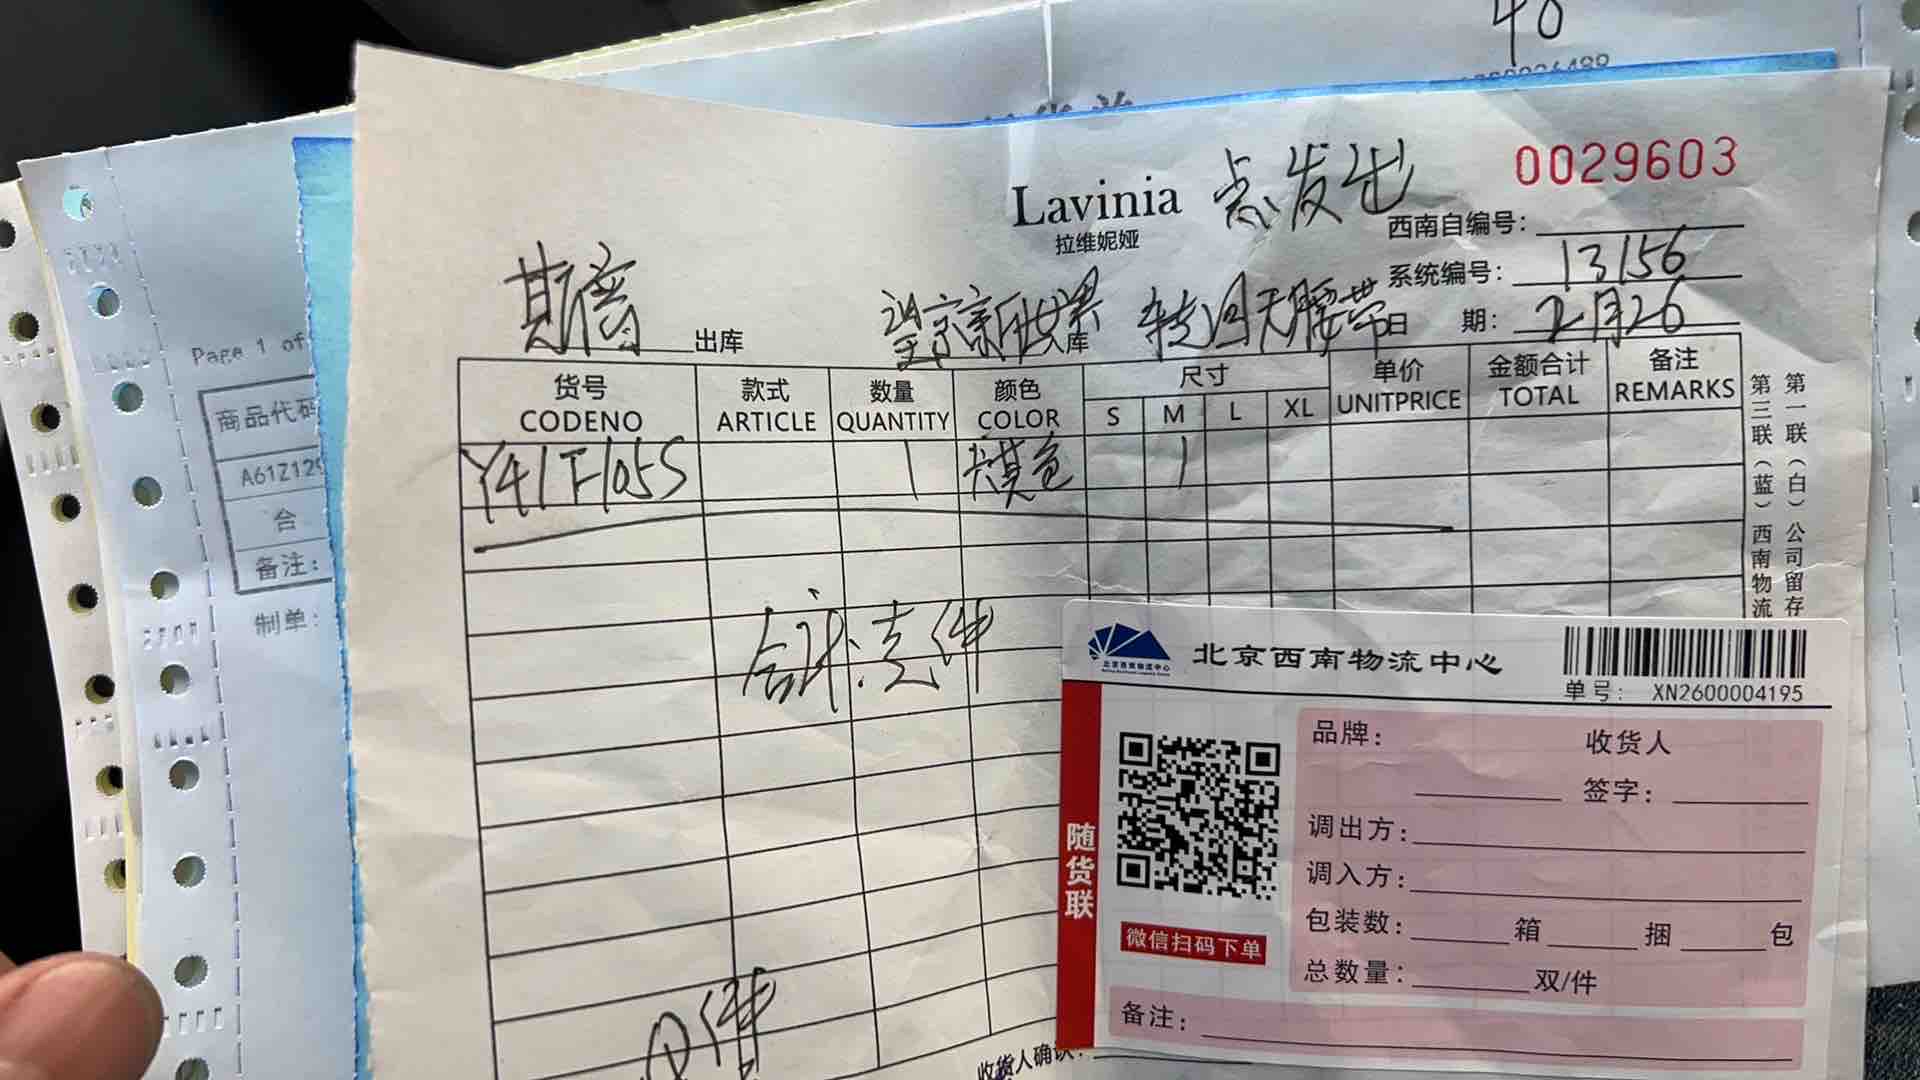 40
0029603
Lavinia 点发出
拉维妮娅
西南自编号:
系统编号: 13156
出库 望京新世界库 转回无腰带 日期: 2月26
货号 款式 数量 颜色 尺寸 单价 金额合计 备注
CODENO ARTICLE QUANTITY COLOR S M L XL UNITPRICE TOTAL REMARKS
Y41T-105S 1 1
合计:壱件
件
收货人确认:
第一联(白)公司留存
第三联(蓝)西南物流
Page 1 of
商品代码
A61Z129
合
备注:
制单:
北京西南物流中心
北京西南物流中心
单号: XN2600004195
随货联
微信扫码下单
品牌: 收货人
签字:
调出方:
调入方:
包装数: 箱 捆 包
总数量: 双/件
备注: